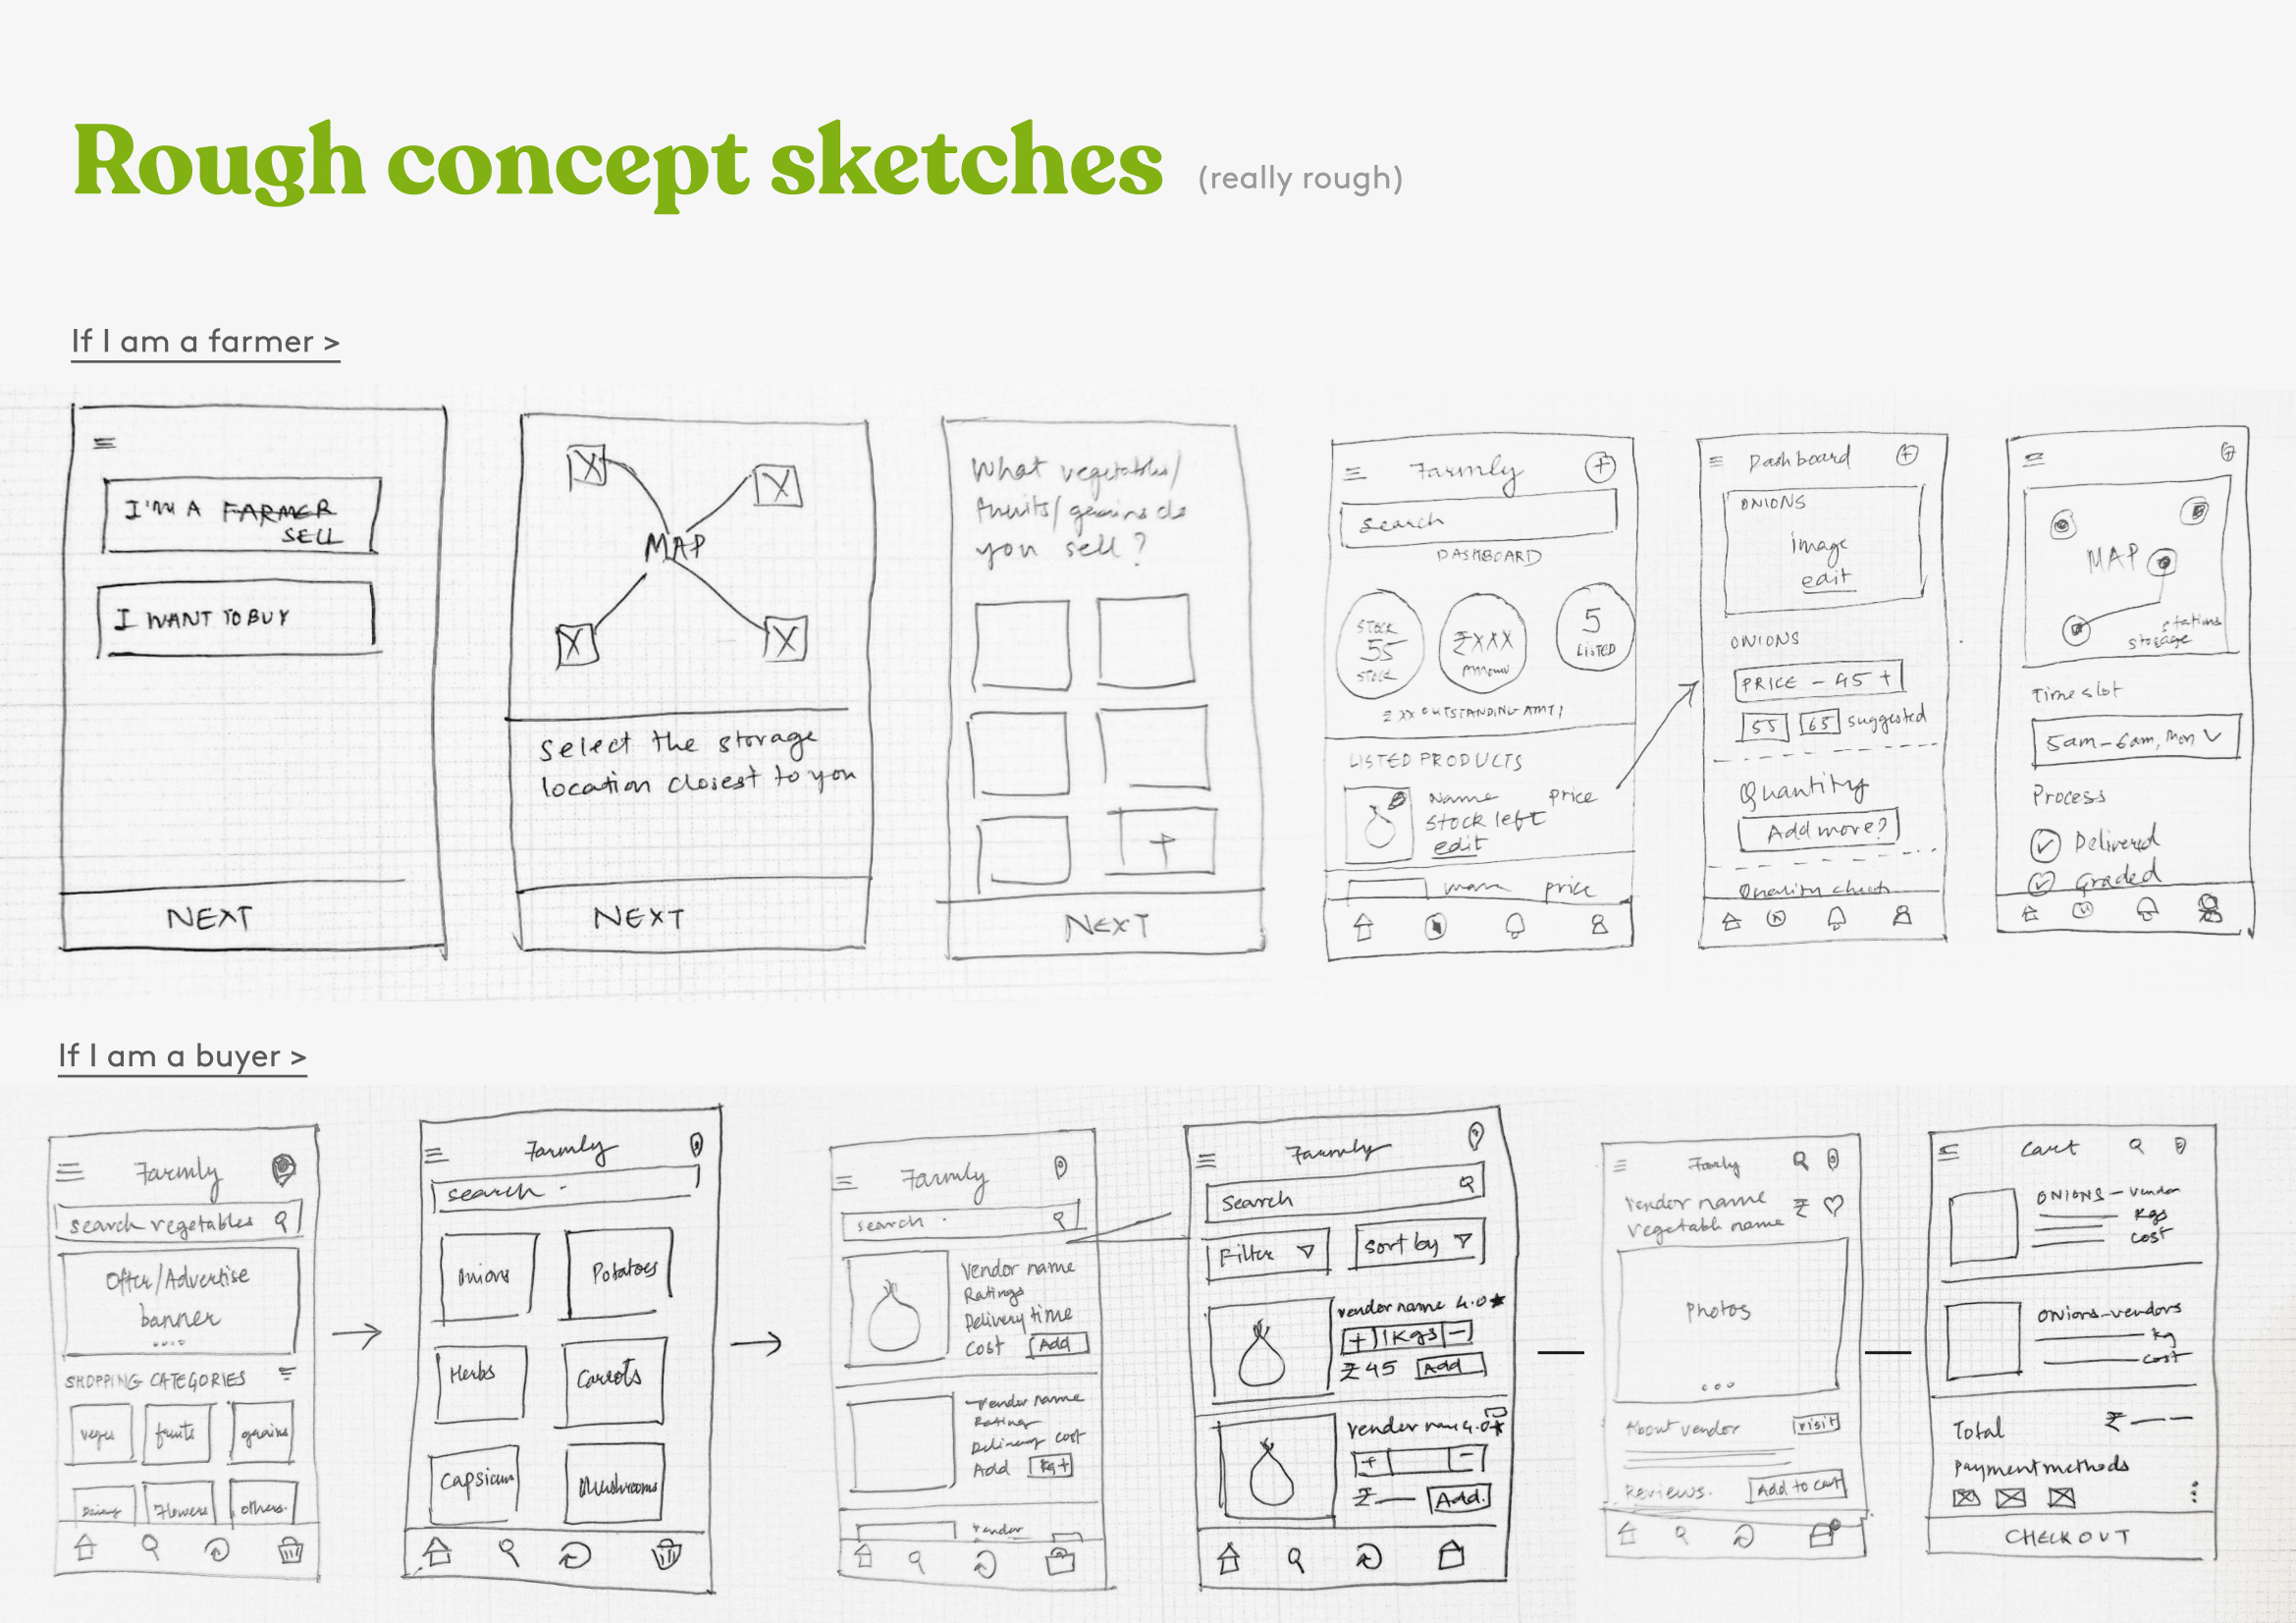 Rough concept sketches (really rough)
If I am a farmer >
I'M A FARMER
SELL
I WANT TO BUY
NEXT
MAP
Select the storage
location closest to you
NEXT
What vegetables/
fruits/grains do
you sell?
NEXT
Farmly
Search
DASHBOARD
STOCK
55
STOCK
₹XXX
5
LISTED
₹ XX OUTSTANDING AMT
LISTED PRODUCTS
Name price
Stock left
edit
price
Dashboard
ONIONS
image
edit
ONIONS
PRICE - 45 +
55 65 suggested
Quantity
Add more?
Quality check
MAP
stations
storage
Time slot
5am-6am, Mon
Process
Delivered
Graded
If I am a buyer >
Farmly
search vegetables
Offer/Advertise
banner
SHOPPING CATEGORIES
veges fruits grains
Dairy Flowers others.
Farmly
search
Onions Potatoes
Herbs Carrots
Capsicum Mushrooms
Farmly
search
Vendor name
Ratings
Delivery time
Cost Add
Vendor name
Rating
Delivery cost
Add kg+
vendor
Farmly
Search
Filter Sort by
vendor name 4.0★
+ 1Kgs -
₹45 Add
vendor name 4.0★
+ -
₹ Add.
Farmly
vendor name ₹
vegetable name
Photos
About vendor visit
Reviews. Add to cart
Cart
ONIONS - vendor
Kgs
cost
Onions-vendors
kg
cost
Total ₹
Payment methods
CHECKOUT